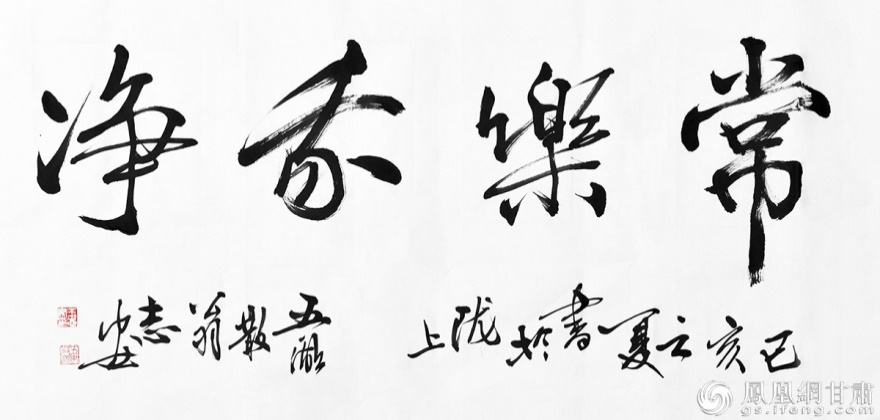 常樂我净
己亥之夏書於陇上
五散翁志
鳳凰網甘肅
gs.ifeng.com